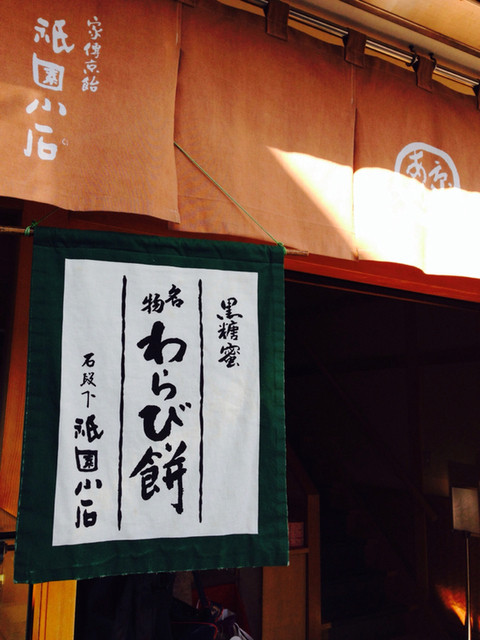 家傳京飴
祇園小石
黒糖蜜
名物
わらび餅
石段下
祇園小石